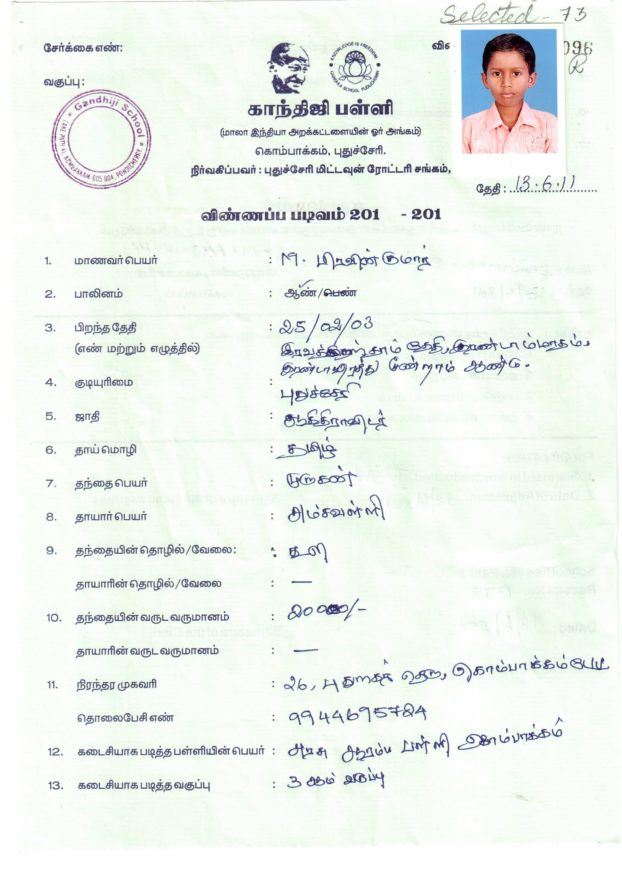 Selected - 73
சேர்க்கை எண்:
096
R
வகுப்பு :
Gandhiji School
KNOWLEDGE IS FREEDOM
காந்திஜி பள்ளி
(மாலா இந்தியா அறக்கட்டளையின் ஓர் அங்கம்)
கொம்பாக்கம், புதுச்சேரி.
நிர்வகிப்பவர் : புதுச்சேரி மிட்டவுன் ரோட்டரி சங்கம்,
தேதி : 13.6.11
விண்ணப்ப படிவம் 201 - 201
1. மாணவர் பெயர் : M. பிரவின்குமார்
2. பாலினம் : ஆண்/பெண்
3. பிறந்த தேதி : 25/02/03
(எண் மற்றும் எழுத்தில்) தேதி, இரண்டாம் மாதம்,
இரண்டாயிரத்து மூன்றாம் ஆண்டு.
4. குடியுரிமை : புதுச்சேரி
5. ஜாதி : ஆதிதிராவிடர்
6. தாய் மொழி : தமிழ்
7. தந்தை பெயர் : முருகன்
8. தாயார் பெயர் : அம்சவள்ளி
9. தந்தையின் தொழில்/வேலை: :
தாயாரின் தொழில்/வேலை : —
10. தந்தையின் வருட வருமானம் : 20000/-
தாயாரின் வருட வருமானம் : —
11. நிரந்தர முகவரி : 26, புதுநகர் தெரு, கொம்பாக்கம்பேட்
தொலைபேசி எண் : 9944695784
12. கடைசியாக படித்த பள்ளியின் பெயர் : அரசு ஆரம்ப பள்ளி கொம்பாக்கம்
13. கடைசியாக படித்த வகுப்பு : 3 ஆம் வகுப்பு